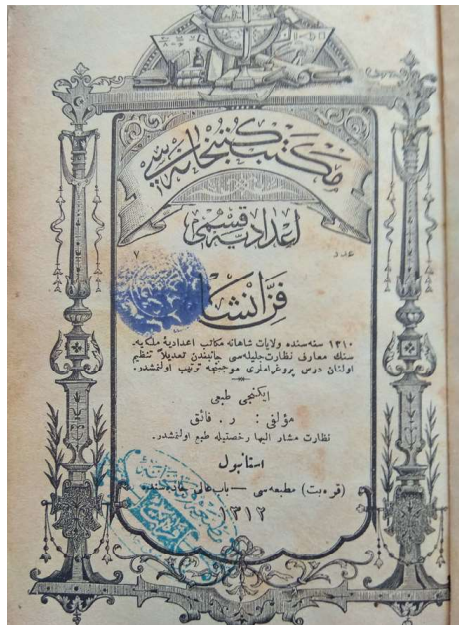 مكتب كتبخانه سی
اعدادیه قسمی
عدد ۷
فن انشا
۱۳۱۰ سنه سنده ولایات شاهانه مكاتب اعدادیۀ ملكیه
سنك معارف نظارت جلیله سی جانبندن تعدیلاً تنظیم
اولنان درس پروغراملری موجبنجه ترتیب اولنمشدر.
ایكنجی طبعی
مؤلفی : ر . فائق
نظارت مشار الیها رخصتیله طبع اولنمشدر.
استانبول
(قره بت) مطبعه سی — باب عالی جاده سنده
۱۳۱۲